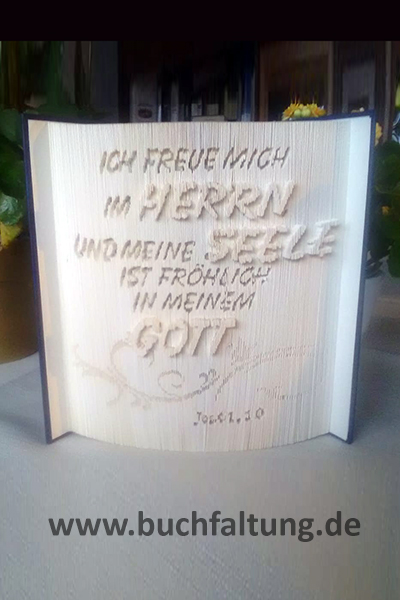 ICH FREUE MICH
IM HERRN
UND MEINE SEELE
IST FRÖHLICH
IN MEINEM
GOTT
1,10
www.buchfaltung.de